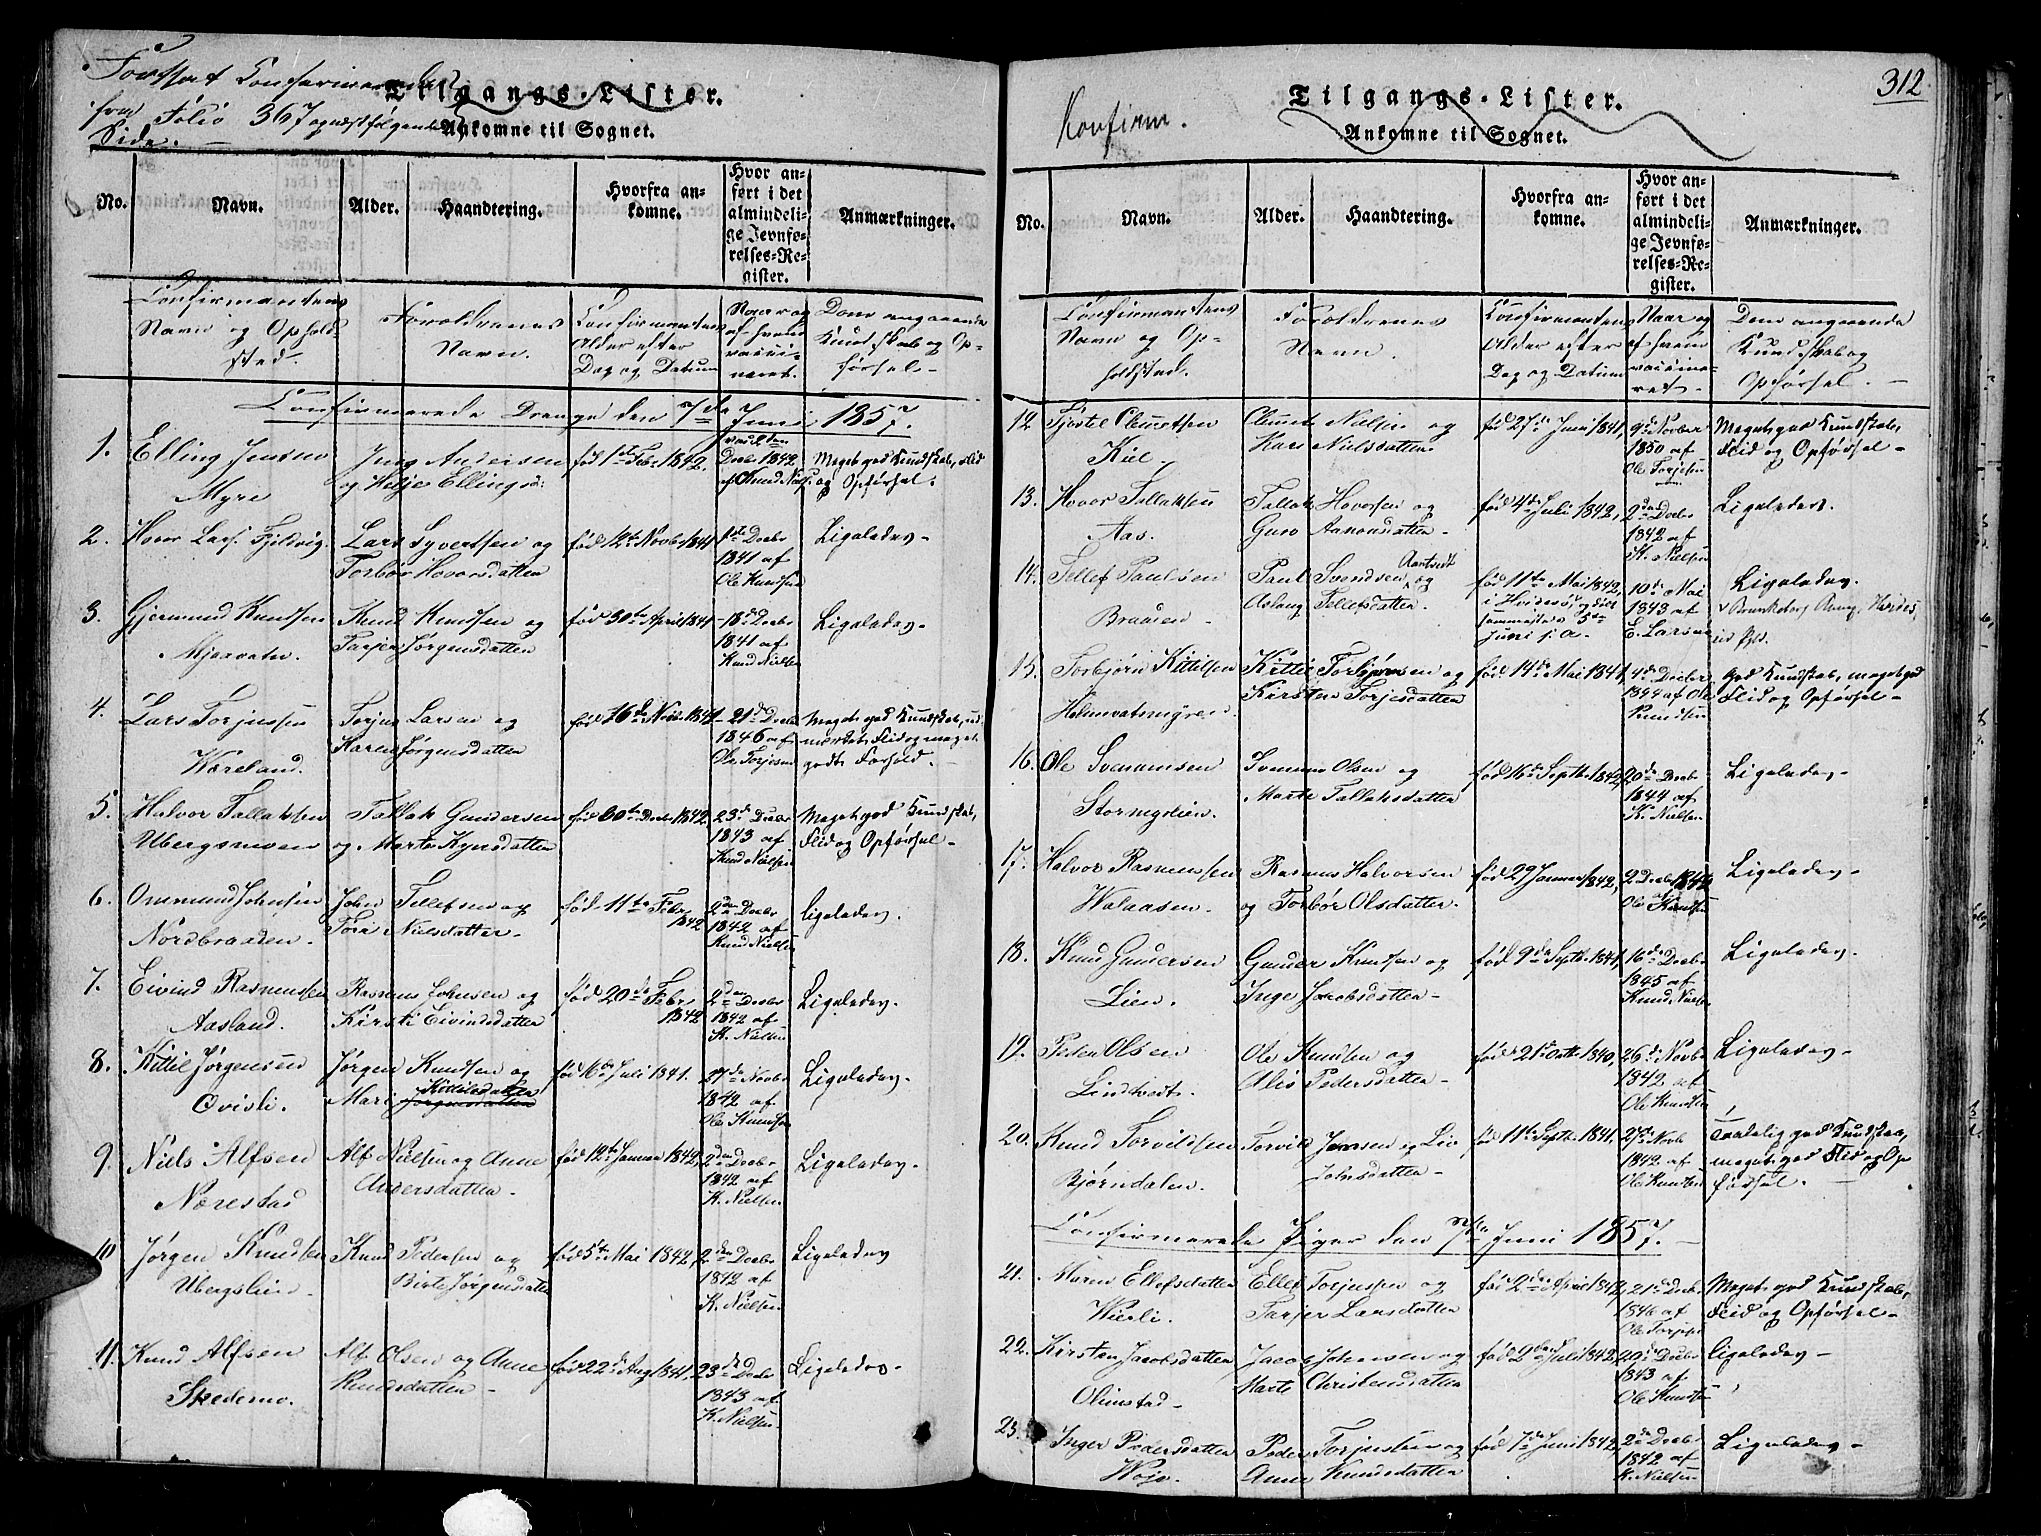 Fortsat Confirmerede
fra Folio 367 og næstfølgende
Side. —
Tilgangs-Lister.
Ankomne til Sognet.
No. Navn. Alder. Haandtering. Hvorfra ankomne. Hvor anført i det almindelige Jevnførelses-Register. Anmærkninger.
Confirmantens Navn og Opholdsted. Forældrenes Navn. Confirmantens Alder efter Dag og Datum Naar og af hvem vaccineret. Dom angaaende Kundskab og Opførsel —
Confirmerede Drenge den 7de Juni 1857.
1. Elling Jensen Myre
Jens Andersen og Helje Ellingsd:
fød 1ste Febr 1842.
Decbr 1842 af Knud Niels.
Meget god Kundskab, Flid og Opførsel.
2. Hover Lars. Fjeldvig
Lars Syvertsen og Torbør Hovorsdatter
fød 12te Novbr 1841
1ste Decbr 1841 af Ole Knudsen
Ligeledes.
3. Gjermund Knudsen Mjaavatn.
Knud Knudsen og Tarjer Jørgensdatter
fød 30te April 1841
18de Decbr 1841 af Knud Nielsen
Ligeledes.
4. Lars Torjussen Wæreland.
Torjus Larsen og Karen Jørgensdatter
fød 26de Novbr 1841
21de Decbr 1846 af Ole Torjesen
Meget god Kundskab, udmærket Flid og meget godt Forhold. —
5. Halvor Tallaksen Ubergsmoen
Tallak Gundersen og Marte Kynsdatter
Decbr 1842
23de Decbr 1843 af Knud Nielsen
Meget god Kundskab, Flid og Opførsel —
6. Ommund Johnsen Nordbraaden.
John Tellefsen og Tora Nielsdatter —
fød 11te Febr 1842
2den Decbr 1842 af Knud Nielsen
Ligeledes.
7. Eivind Rasmussen Aasland.
Rasmus Johnsen og Kirsti Eivindsdatter
fød 20de Febr 1842
2den Decbr 1842 af K. Nielsen
Ligeledes.
8. Kittil Jørgensen Qvisli.
Jørgen Knudsen og Mari Kittilsdatter
fød 16de Juli 1841.
27de Novbr 1842 af Ole Knudsen
Ligeledes.
9. Niels Alfsen Nærestad
Alf Nielsen og Anne Andersdatter —
fød 12te Januar 1842,
2den Decbr 1842 af K. Nielsen
Ligeledes.
10 Jørgen Knudsen Ubergslien
Knud Pedersen og Birte Jørgensdatter
fød 5te Mai 1842,
2den Decbr 1842 af K. Nielsen
Ligeledes
11. Knud Alfsen Skedemo.
Alf Olsen og Anne Knudsdatter —
fød 22de Aug 1841,
23de Decbr 1843 af K. Nielsen
Ligeledes.
Konfirm.
312
Tilgangs-Lister.
Ankomne til Sognet.
No. Navn. Alder. Haandtering. Hvorfra ankomne. Hvor anført i det almindelige Jevnførelses-Register. Anmærkninger.
Confirmantens Navn og Opholdsted. Forældrenes Navn. Confirmantens Alder efter Dag og Datum Naar og af hvem vaccineret. Dom angaaende Kundskab og Opførsel. —
12. Kiel —
Nielsen og Kari Nielsdatter
fød 27de Juni 1841,
9de Novber 1850 af Ole Torjesen
Meget god Kundskab, Flid og Opførsel —
13. Hover Tallaksen Aas.
Tallak Hoversen og Guro Aanonsdatter —
fød 4de Juli 1842,
2den Decbr 1842 af K. Nielsen
Ligeledes.
14. Tellef Paulsen Braaden —
Paul Svendsen og Aslaug Tellefsdatter.
fød 11te Mai 1842, i Hvideseid og døbt sammesteds 5te Juni s. a.
10de Mai 1843 af E. Larsen
Ligeledes.
15. Torbjørn Kittilsen Helmvatnmyren.
Kittil Torbjørnsen og Kirsten Torjesdatter
fød 14de Mai 1841,
4de Decber 1844 af Ole Knudsen
God Kundskab, meget god Flid og Opførsel —
16. Ole Svennumsen Stormyrlien.
Svennum Olsen og Marte Tallaksdatter
fød 16de Septbr 1842,
20de Decbr 1844 af K. Nielsen
Ligeledes —
17. Halvor Rasmussen Walaasen.
Rasmus Halvorsen og Torbør Olsdatter.
fød 29 Januar 1842,
2 Decbr 1842 af Ole Knudsen
Ligeledes —
18. Knud Gundersen Lien.
Gunder Knudsen og Inge Jacobsdatter —
fød 9de Septbr 1841,
16de Decbr 1845 af Knud Nielsen
Ligeledes.
19. Peder Olsen Lindtvedt.
Ole Knudsen og Alis Pedersdatter —
fød 21de Octbr 1840,
26de Novbr 1842 af Ole Knudsen
Ligeledes —
20. Knud Torvildsen Bjørndalen.
Torvild Jensen og Liv Johnsdatter —
fød 11te Septbr 1841,
27de Novbr 1842 af Ole Knudsen
Taalelig god Kundskab, meget god Flid og Opførsel. —
Confirmerede Piger den 7de Juni 1857. —
21. Maren Ellefsdatter Wierli.
Ellef Torjussen og Tarjer Larsdatter
fød 2den April 1842,
21de Decbr 1846 af Ole Torjesen
Meget god Kundskab, Flid og Opførsel —
22. Kirsten Jacobsdatter Olimstad —
Jacob Johnsen og Marte Christensdatter
fød 2den Juli 1842,
20de Decbr 1843 af Ole Knudsen
Ligeledes —
23. Inger Pedersdatter Woje.
Peder Torjussen og Anne Knudsdatter
fød 7de Juni 1842,
2den Decbr 1842 af K. Nielsen
Ligeledes —